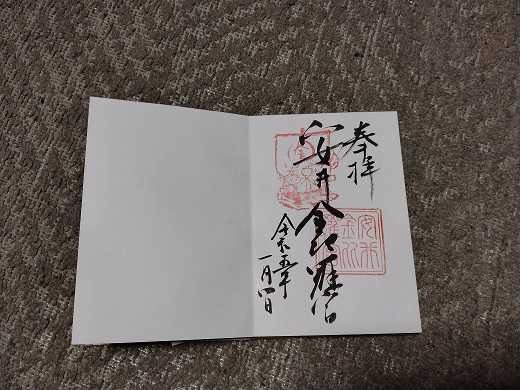 奉拝
安井金比羅宮
令和五年
一月四日